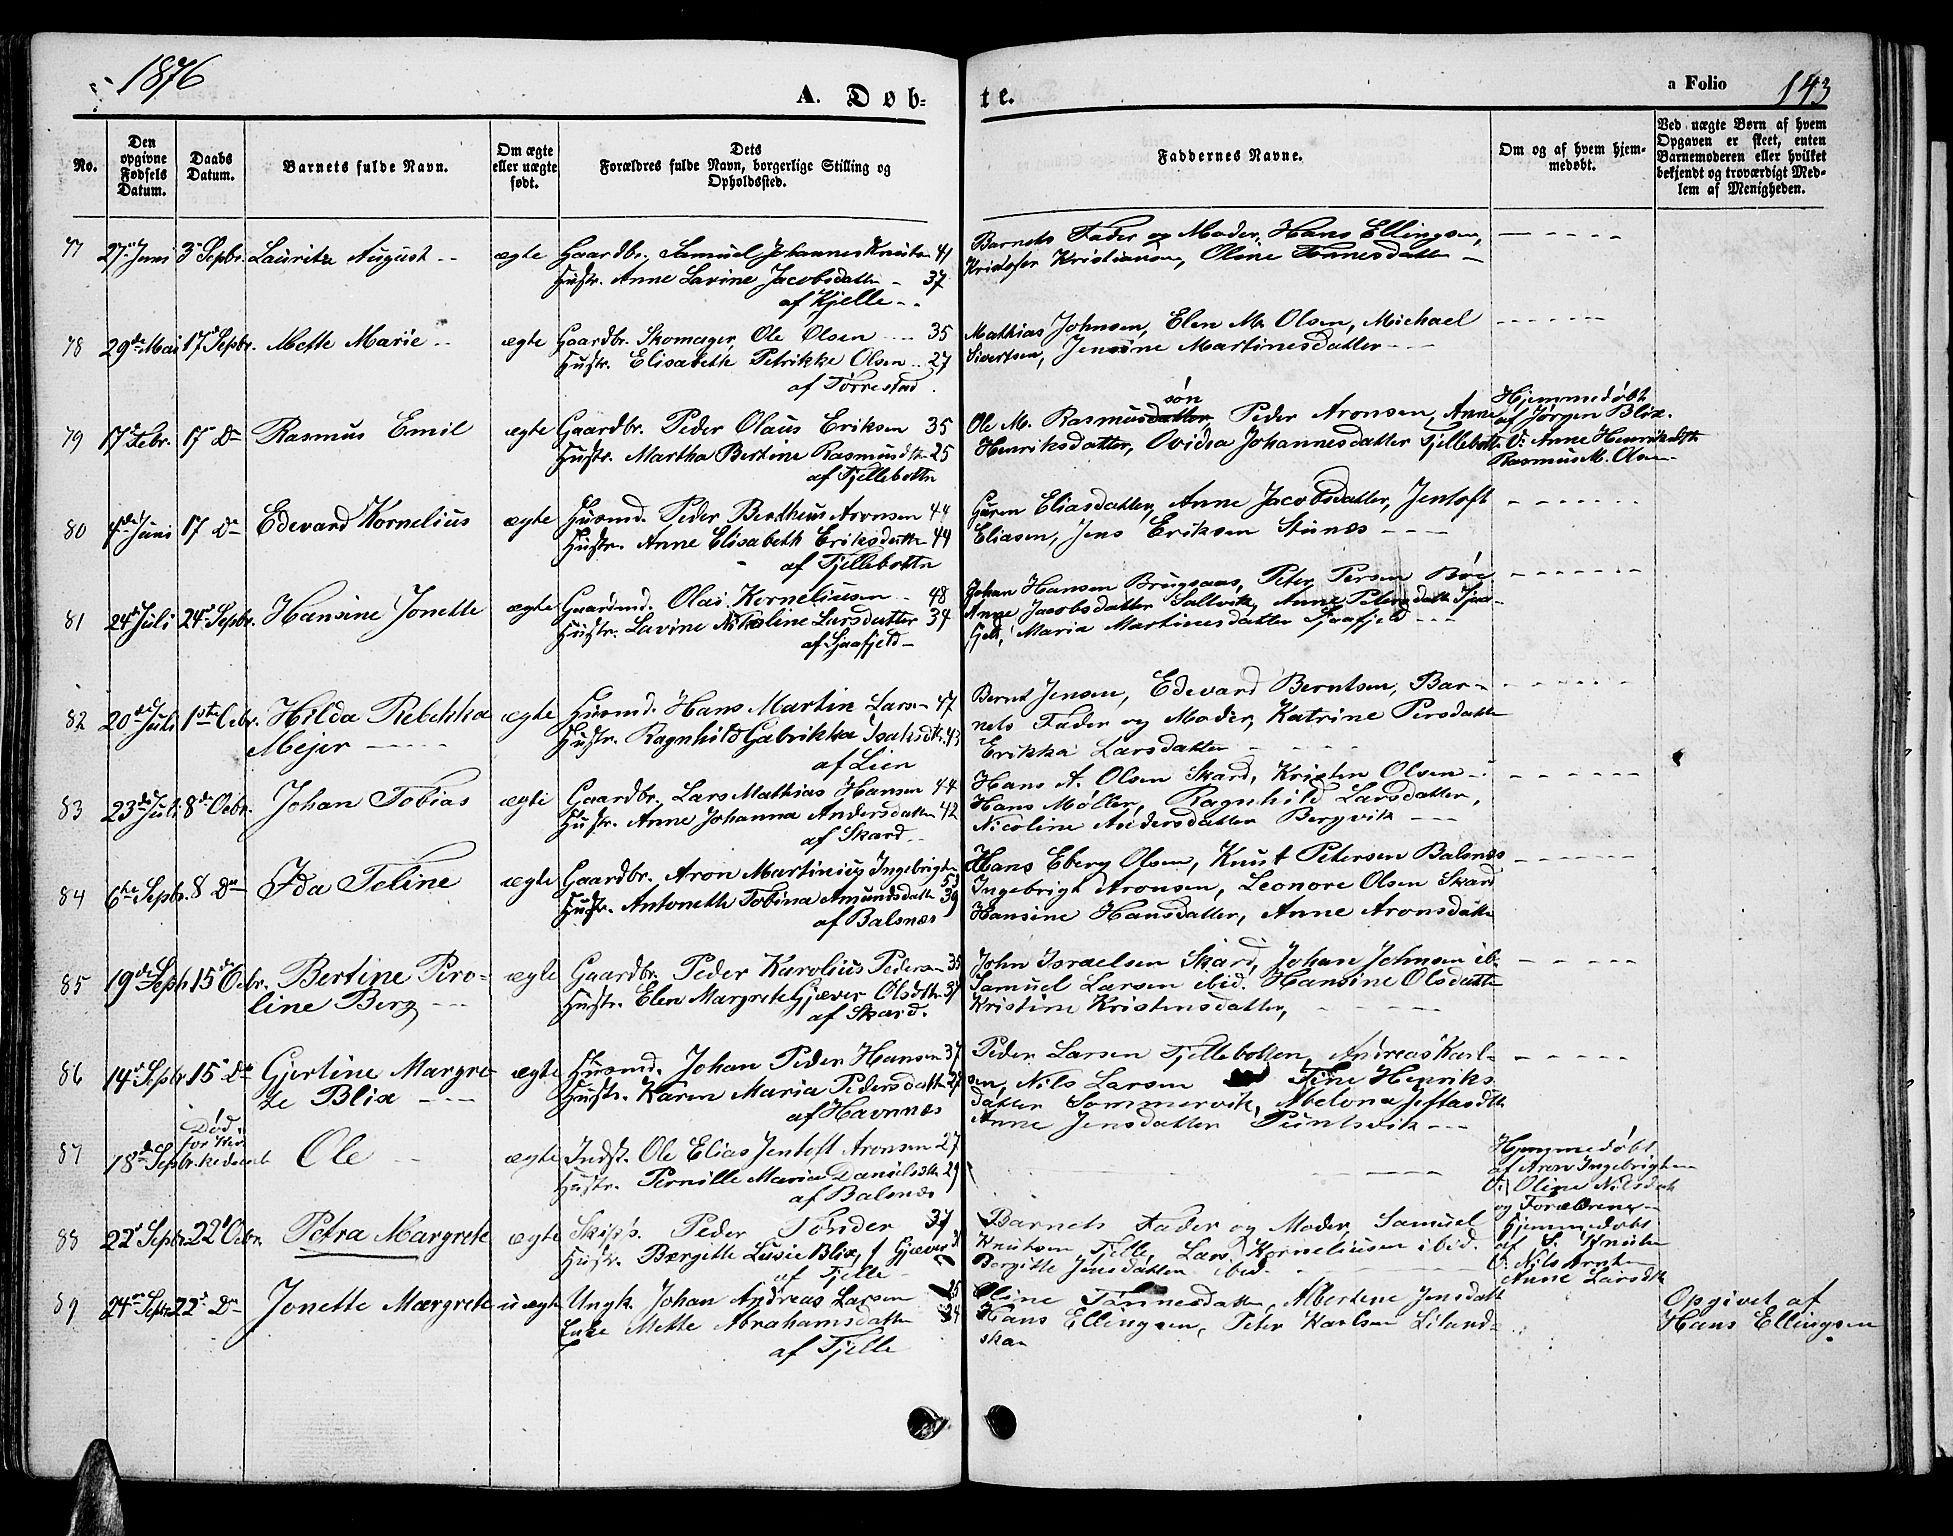 1876
A. Døb-
te.
a Folio 143
No.
Den opgivne Fødsels Datum.
Daabs Datum.
Barnets fulde Navn.
Om ægte eller uægte født.
Dets Forældres fulde Navn, borgerlige Stilling og Opholdssted.
Faddernes Navne.
Om og af hvem hjemmedøbt.
Ved uægte Børn af hvem Opgaven er skeet, enten Barnemoderen eller hvilket bekjendt og troværdigt Medlem af Menigheden.
77 27 Juni 3 Sepbr. Lauritz August ægte Gaardbr. Samuel Johannes Knutsen 41
Hustr. Anne Lavine Jacobsdatter 37
af Kjelle
Barnets Fader og Moder, Hans Ellingsen,
Kristofer Kristiansen, Oline Tønnesdatter
78 29de Mai 17 Sepbr. Mette Marie ægte Gaardbr. Skomager Ole Olsen 35
Hustr. Elisabeth Petrikke Olsen 27
af Tørrestad
Mathias Johnsen, Elen M. Olsen, Michael
Sivertsen, Jensine Martinesdatter
79 17de Febr. 17 Do Rasmus Emil ægte Gaardbr. Peder Olaus Eriksen 35
Hustr. Martha Bertine Rasmusdtr 25
af Fjellebotten
søn
Ole M. Rasmusdatter, Peder Aronsen, Anne
Henriksdatter, Ovidia Johannesdatter Fjellebott
Hjemmedøbt
af Jørgen Blix.
V: Anne Henriksdtr
Rasmus M. Olsen
80 4de Juni 17 Do Edevard Kornelius ægte Husmd. Peder Bertheus Aronsen 44
Hustr. Anne Elisabeth Eriksdatter 44
af Fjellebotten
Guren Eliasdatter, Anne Jacobsdatter, Jentoft
Eliasen, Jens Eriksen Stunæs
81 24 Juli 24 Sepbr. Hansine Jonette ægte Gaardmd. Olai Korneliusen 48
Hustr. Lavine Nikoline Larsdatter 34
af Sjaafjeld
Johan Hansen Brugsaas, Peter Persen Bøe
Anne Jacobsdatter Saltvik, Anne Petersdatter Sjaa-
fjeld, Maria Martinesdatter Sjaafjeld
82 20de Juli 1ste Ocbr. Hilda Rebekka
Mejer
ægte Husmd. Hans Martin Larsen 47
Hustr. Ragnhild Gabrikka Isaksdtr. 43
af Lien
Bernt Jensen, Edevard Berntsen, Bar-
nets Fader og Moder, Katrine Persdatter
Erikka Larsdatter
83 23de Juli 8de Ocbr. Johan Tobias ægte Gaardbr. Lars Mathias Hansen 44
Hustr. Anne Johanna Andersdatter 42
af Skard
Hans A. Olsen Skard, Kristen Olsen
Hans Møller, Ragnhild Larsdatter,
Nicoline Andersdatter Bergvik
84 6te Sepbr. 8 Do Ida Teline ægte Gaardbr. Aron Martinius Ingebrigtsen
53
Hustr. Antonette Tobina Amundsdatter 39
af Balsnæs
Hans Eberg Olsen, Knut Petersen Balsnæs
Ingebrigt Aronsen, Leonore Olsen Skard
Hansine Hansdatter, Anne Aronsdatter
85 19de Sepbr. 15de Ocbr. Bertine Piro-
line Berg
ægte Gaardbr. Peder Karolius Pedersen 35
Hustr. Elen Margrete Gjæver Olsdtr 37
af Skard.
John Israelsen Skard, Johan Johnsen ib.
Samuel Larsen ibid. Hansine Olsdatter
Kristine Kristensdatter,
86 14 Sepbr. 15 Do Gjertine Margre-
te Blix
ægte Husmd. Johan Peder Hansen 37
Hustr. Karen Maria Pedersdatter 27
af Havnnæs
Peder Larsen Fjellebotten, Andreas Karl-
sen, Nils Larsen Tine Henriks
datter Sommervik, Abelona Jeftasdtr
Anne Jensdatter Puntsvik
87 18de Sepbr. Død
før
Ole ægte Indst. Ole Elias Jentoft Aronsen 27
Hustr. Pernille Maria Danielsdtr 29
af Balsnæs
Hjemmedøbt
af Aron Ingebrigtsen
V: Oline Nilsdatter
og Forældrene
88 22 Sepbr 22 Ocbr. Petra Margrete ægte Skips. Peder Tønder 37
Hustr. Bergitte Lusie Blix, f Gjæver
af Fjelle
Barnets Fader og Moder, Samuel
Knutsen Fjelle, Lars Korneliusen ibid.
Bergitte Jensdatter ibid.
Hjemmedøbt
af S. Knutsen
V: Nils Arnt
Anne Larsdtr
89 24 Sepbr 22 Do Jonette Margrete uægte Ungk. Johan Andreas Larsen 25
Enke Mette Abrahamsdatter 34
af Fjelle
Oline Tønnesdatter, Albertine Jensdatter
Hans Ellingsen, Peter Karlsen Liland-
skar
Opgivet af
Hans Ellingsen